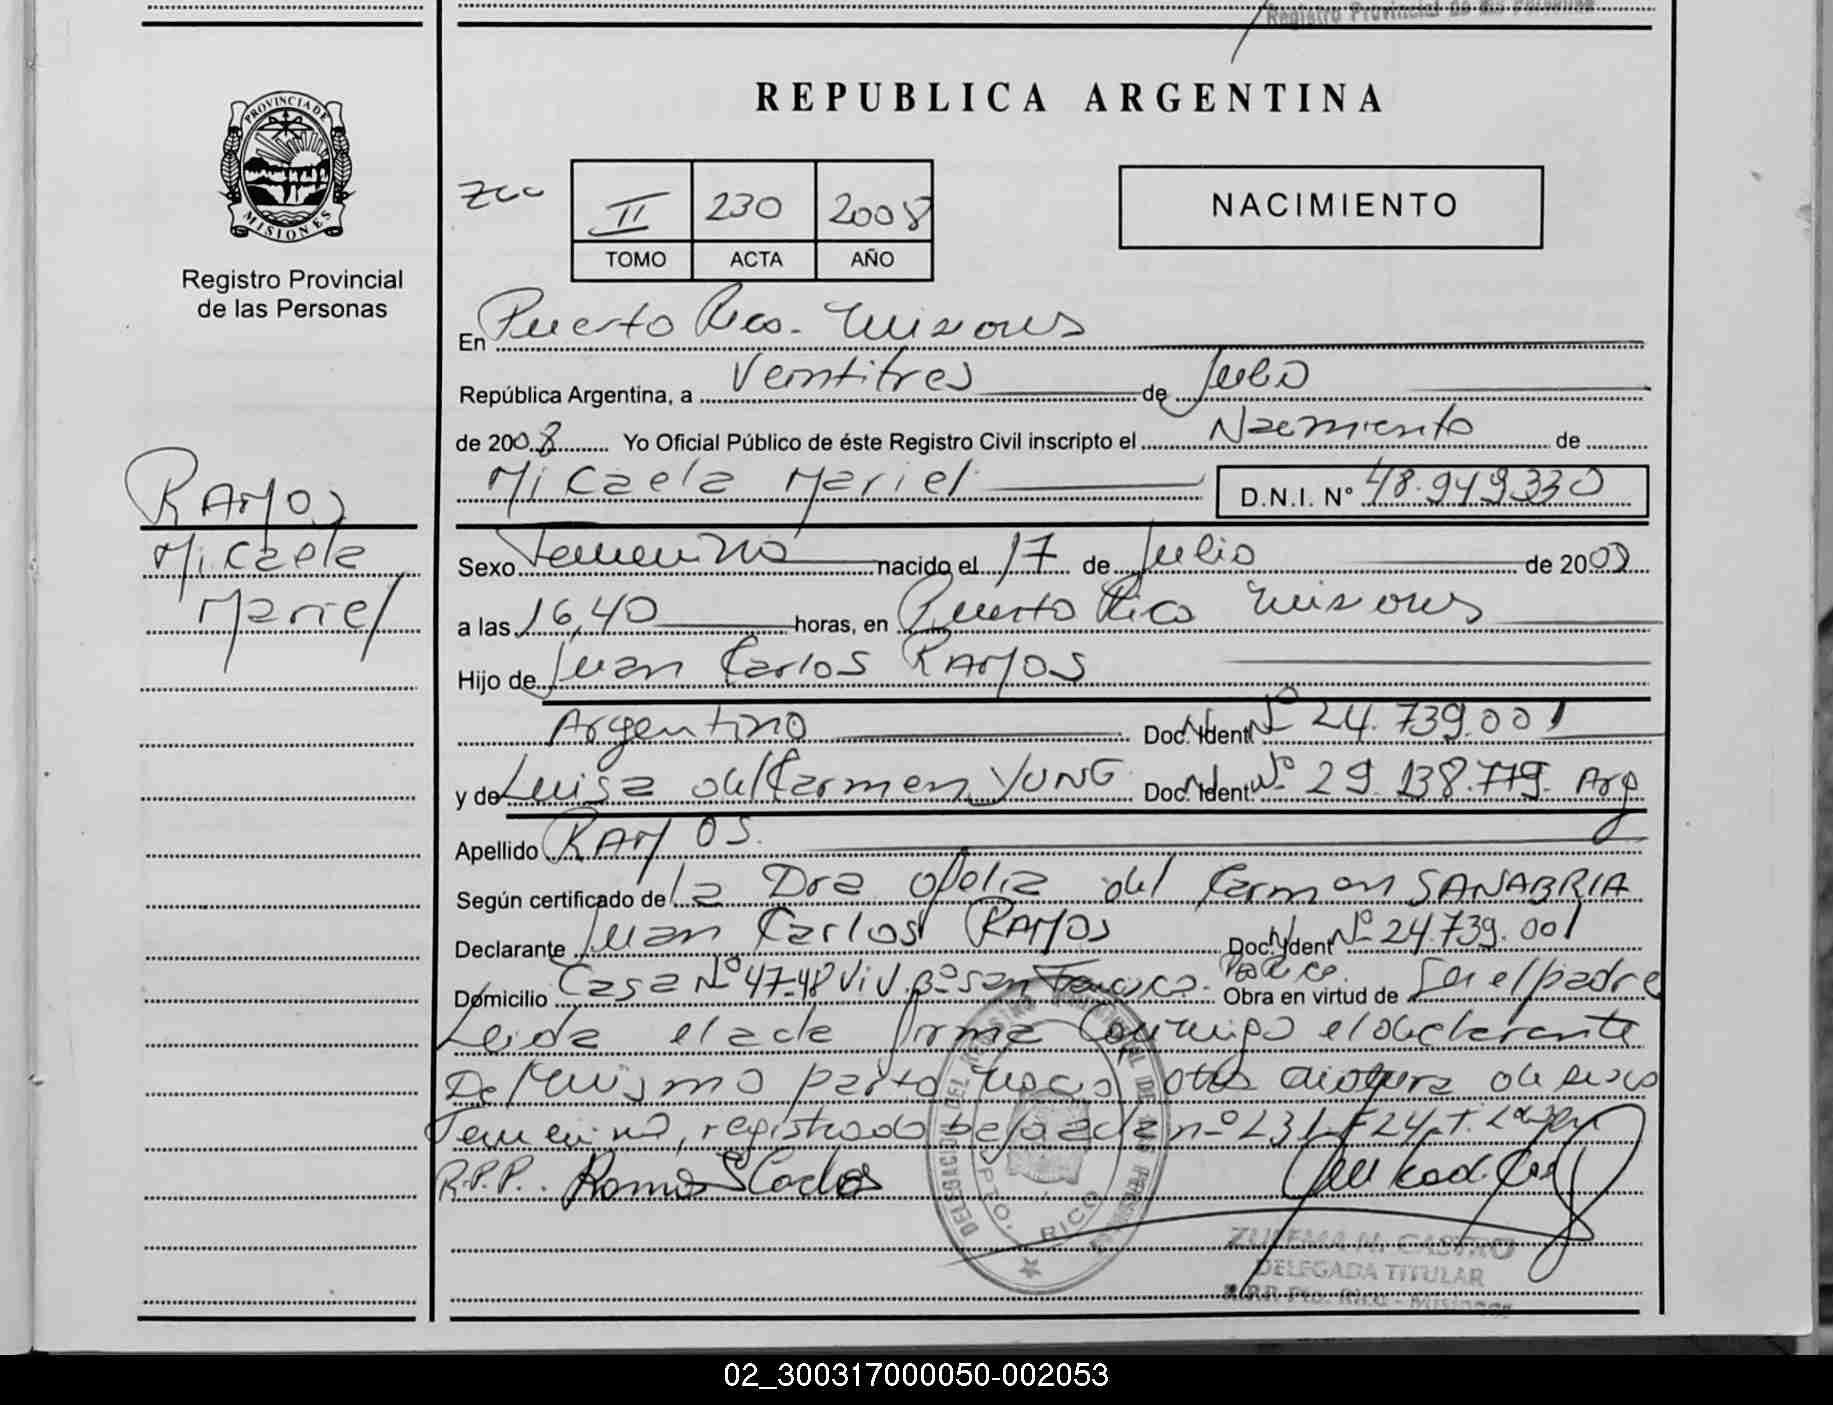 Registro Provincial de las Personas
REPUBLICA ARGENTINA
PROVINCIA DE
MISIONES
Registro Provincial
de las Personas
II 230 2008
TOMO ACTA AÑO
NACIMIENTO
En Puerto Rico - Misiones
República Argentina, a Veintitres de Julio
de 2008 Yo Oficial Público de éste Registro Civil inscripto el Nacimiento de
Micaela Mariel D.N.I. Nº 48.949330
RAMOS
Micaela
Mariel
Sexo Femenino nacido el 17 de Julio de 2008
a las 16,40 horas, en Puerto Rico Misiones
Hijo de Juan Carlos RAMOS
Argentino Doc. Ident Nº 24.739.001
y de Luisa del Carmen YUNG Doc. Ident Nº 29.138.779. Arg
Apellido RAMOS.
Según certificado de la Dra Ofelia del Carmen SANABRIA
Declarante Juan Carlos RAMOS Doc. Ident Nº 24.739.001
Domicilio Casa Nº 47-48 Viv. Bº San Francisco. Pto Rico. Obra en virtud de Ser el padre
Leida el acta firma conmigo el declarante
Del mismo parto nacio otra criatura de sexo
Femenino, registrado bajo acta nº 231 F 24, T. 2º
R.P.P. Ramos Carlos
DELEGACION DEL REGISTRO PROVINCIAL DE LAS PERSONAS
PTO. RICO
ZULEMA N. CASTRO
DELEGADA TITULAR
R.P.P. Pto. Rico - Misiones
02_300317000050-002053